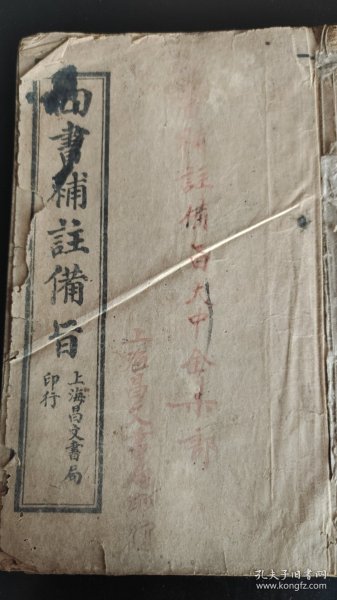 四書補註備旨
上海昌文書局
印行
書補註備旨大中合
上海昌文書局印行
孔夫子旧书网
www.kongfz.com